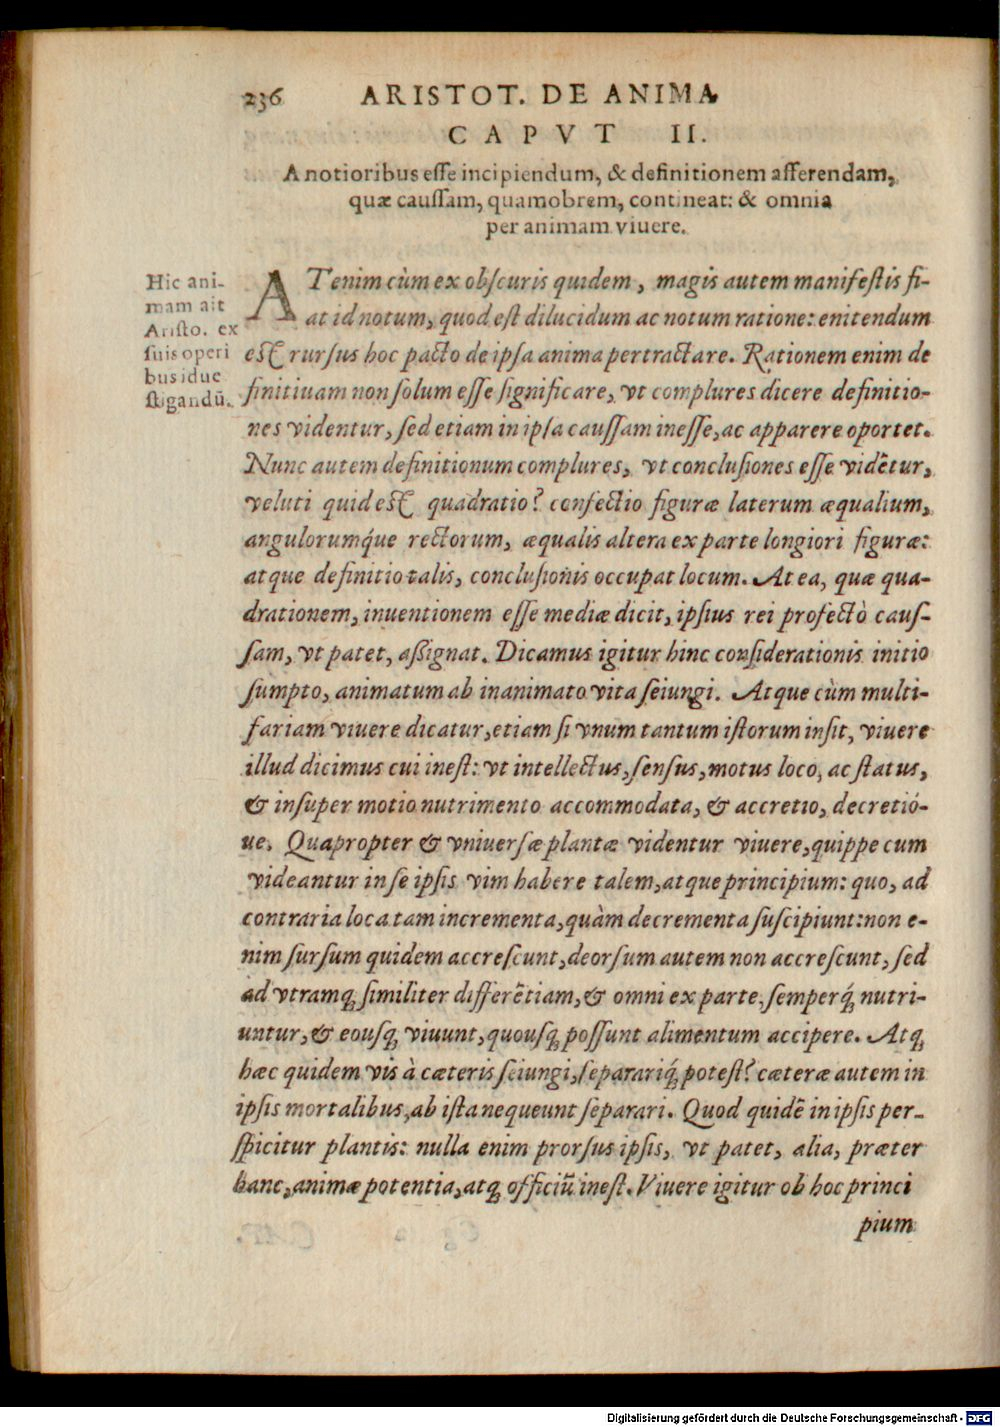 236 ARISTOT. DE ANIMA
CAPVT II.
A notioribus esse incipiendum, & definitionem afferendam,
quæ caussam, quamobrem, contineat: & omnia
per animam viuere.
Hic ani-
mam ait
Aristo. ex
suis operi
bus idue
stigandū.
ATenim cùm ex obscuris quidem, magis autem manifestis fi-
at id notum, quod est dilucidum ac notum ratione: enitendum
est rursus hoc pacto de ipsa anima pertractare. Rationem enim de
finitiuam non solum esse significare, vt complures dicere definitio-
nes videntur, sed etiam in ipsa caussam inesse, ac apparere oportet.
Nunc autem definitionum complures, vt conclusiones esse vidētur,
veluti quid est quadratio? confectio figuræ laterum æqualium,
angulorumq́ue rectorum, æqualis altera ex parte longiori figuræ:
atque definitio talis, conclusionis occupat locum. At ea, quæ qua-
drationem, inuentionem esse mediæ dicit, ipsius rei profectò caus-
sam, vt patet, assignat. Dicamus igitur hinc considerationis initio
sumpto, animatum ab inanimato vita seiungi. Atque cùm multi-
fariam viuere dicatur, etiam si vnum tantum istorum insit, viuere
illud dicimus cui inest: vt intellectus, sensus, motus loco, ac status,
& insuper motio nutrimento accommodata, & accretio, decretió-
ue. Quapropter & vniuersæ plantæ videntur viuere, quippe cum
videantur in se ipsis vim habere talem, atque principium: quo, ad
contraria loca tam incrementa, quàm decrementa suscipiunt: non e-
nim sursum quidem accrescunt, deorsum autem non accrescunt, sed
ad vtramq; similiter differētiam, & omni ex parte, semperq́; nutri-
untur, & eousq; viuunt, quousq; possunt alimentum accipere. Atq;
hæc quidem vis à cæteris seiungi, separariq́; potest? cæteræ autem in
ipsis mortalibus, ab ista nequeunt separari. Quod quidē in ipsis per-
spicitur plantis: nulla enim prorsus ipsis, vt patet, alia, præter
hanc, animæ potentia, atq; officiū inest. Viuere igitur ob hoc princi
pium
Digitalisierung gefördert durch die Deutsche Forschungsgemeinschaft - DFG